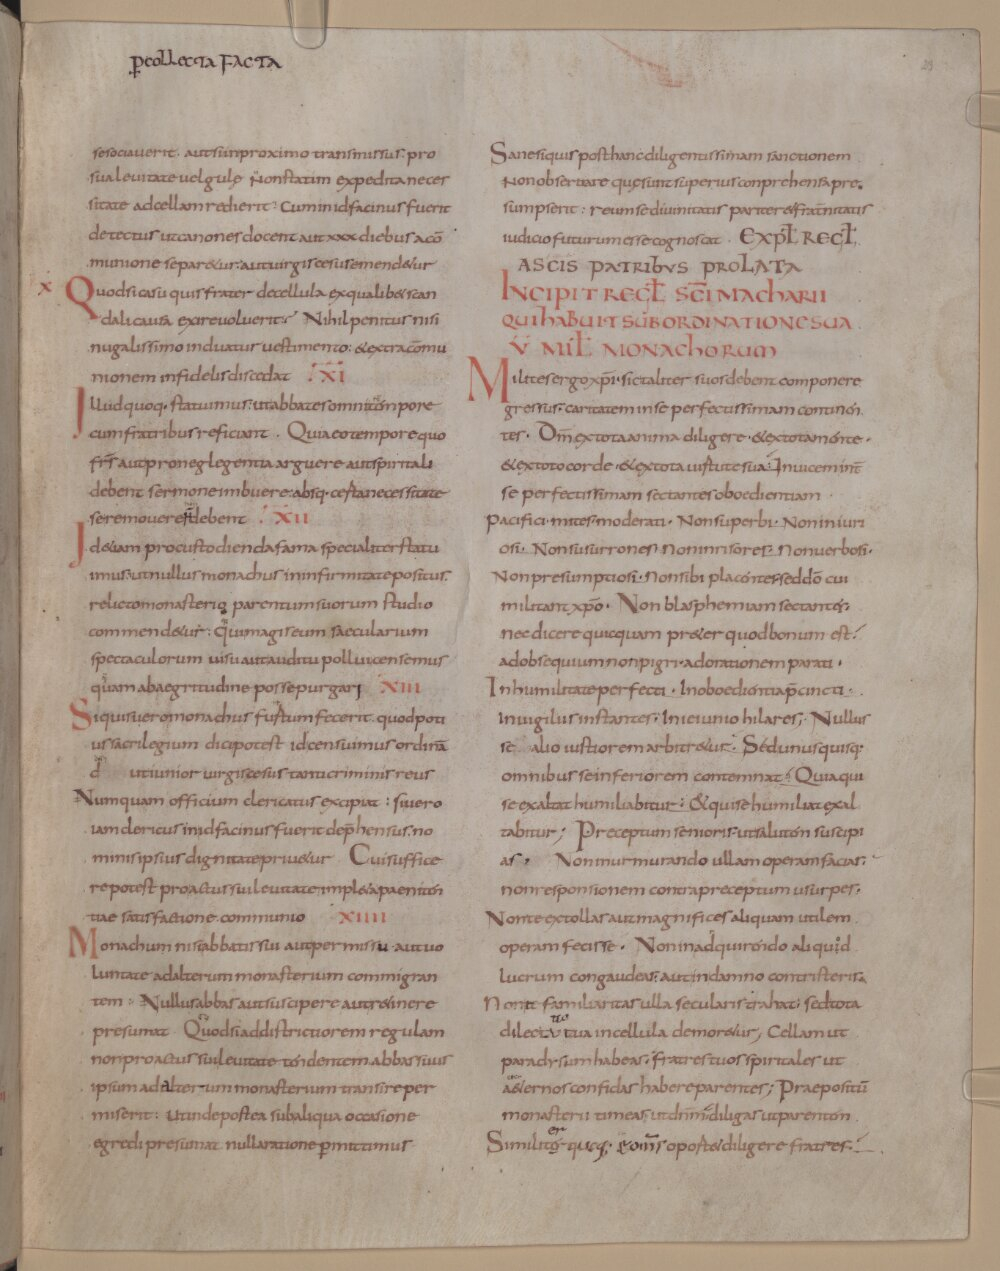 p̱collecta FACTA
29
sesociaverit· autsi in proximo transmissus· pro
sua levitate vel gulę Non statim expedita neces
sitate ad cellam redierit· Cum in id facinus fuerit
detectus ut canones docent aut xxx diebus a cō
munione separ&ur· aut virgis cesus emend&ur
x Quod si casu quis frater de cellula ex qualib& scan
dali causa exire voluerit· Nihil penitus nisi
nugalissimo induatur vestimento· & extra cōmu
nionem infidelis discedat XI
Illud quoq· statuimus· ut abbates omni tempore
cum fratribus reficiant· Quia eo tempore quo
frs̄ aut pro neglegentia arguere aut spiritali
debent sermone imbuere· absq· certa necessitate
se removere n̄ debent XII
Id&iam pro custodienda fama specialiter statu
imus· ut nullus monachus in infirmitate positus·
relicto monasterio parentum suorum studio
commend&ur· Qui magis eum saecularium
spectaculorum visu aut auditu pollui censemus
quam ab aegritudine posse purgari XIII
Si quis vero monachus furtum fecerit quod poti
us sacrilegium dici potest id censuimus ordinā
d ut iunior virgis cesus tanti criminis reus
Numquam officium clericatus excipiat· si vero
iam clericus in id facinus fuerit dep̄hensus· no
minis ipsius dignitate priv&ur Cui suffice
re potest pro actus sui levitate impl&a paeniten
tiae satisfactione communio XIIII
Monachum nisi abbatis sui aut permissu aut vo
luntate ad alterum monasterium commigran
tem· Nullus abbas aut suscipere aut r&inere
presumat Quodsi ad districtiorem regulam
non pro actus sui levitate tendentem abbas suus
ipsum ad alterum monasterium transire per
miserit· Ut inde postea sub aliqua occasione
egredi presumat nulla ratione p̱mittimus
Sane si quis post hanc diligentissimam sanctionem
Non observare quę sunt superius conprehensa pre
sumpserit· reum se divinitatis pariter & frat̄nitatis
iudicio futurum esse cognoscat· EXPL̄ REGL̄
A SC̄IS PATRIBVS PROLATA
INCIPIT REGL̄ SC̄I MACHARII
QUI HABUIT SUB ORDINATIONE SUA
V̄ MIL̄ MONACHORUM
Milites ergo xp̄i· sic taliter suos debent componere
gressus· caritatem in se perfectissimam continen
tes· Dm̄ ex tota anima diligere· & ex tota mente·
& ex toto corde· & ex tota virtute sua· Invicem int̄
se perfectissimam sectantes oboedientiam
Pacifici· mites· moderati· Non superbi· Non iniuri
osi· Non susurrones· Non inrisores· Non verbosi·
Non presumptiosi· non sibi placentes· sed dō cui
militant xp̄o· Non blasphemiam sectantes·
nec dicere quicquam pr&er quod bonum est·
ad obsequium non pigri· ad orationem parati·
In humilitate perfecti· In oboedientia p̄cincti·
In vigiliis instantes· In ieiunio hilares; Nullus
se alio iustiorem arbitr&ur· Sed unusquisq·
omnibus se inferiorem contemnat· Quia qui
se exaltat humiliabitur· & qui se humiliat exal
tabitur; Preceptum senioris· ut salutem suscipi
as· Non in murmurando ullam operam facias·
non responsionem contra preceptum usurpes·
Non te extollas aut magnifices aliquam utilem
operam fecisse· Non in adquirendo aliquid
lucrum congaudeas· aut in damno contristeris·
Non te familiaritas ulla secularis trahat· sed tota
dilectio tua in cellula demor&ur; Cellam ut
paradysum habeas· fratres tuos spiritales ut
aeternos confidas habere parentes; Praepositū
monasterii timeas ut dn̄m· diligas ut parentem
Similiter quoq· & om̄s oport& diligere fratres·